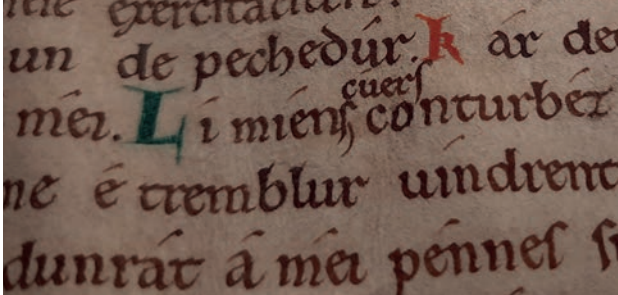 exercitaciun.
un de pechedúr. k ar de
méi. Li miens cuers conturbét
ne é tremblur uindrent
dunrát á méi pénnes